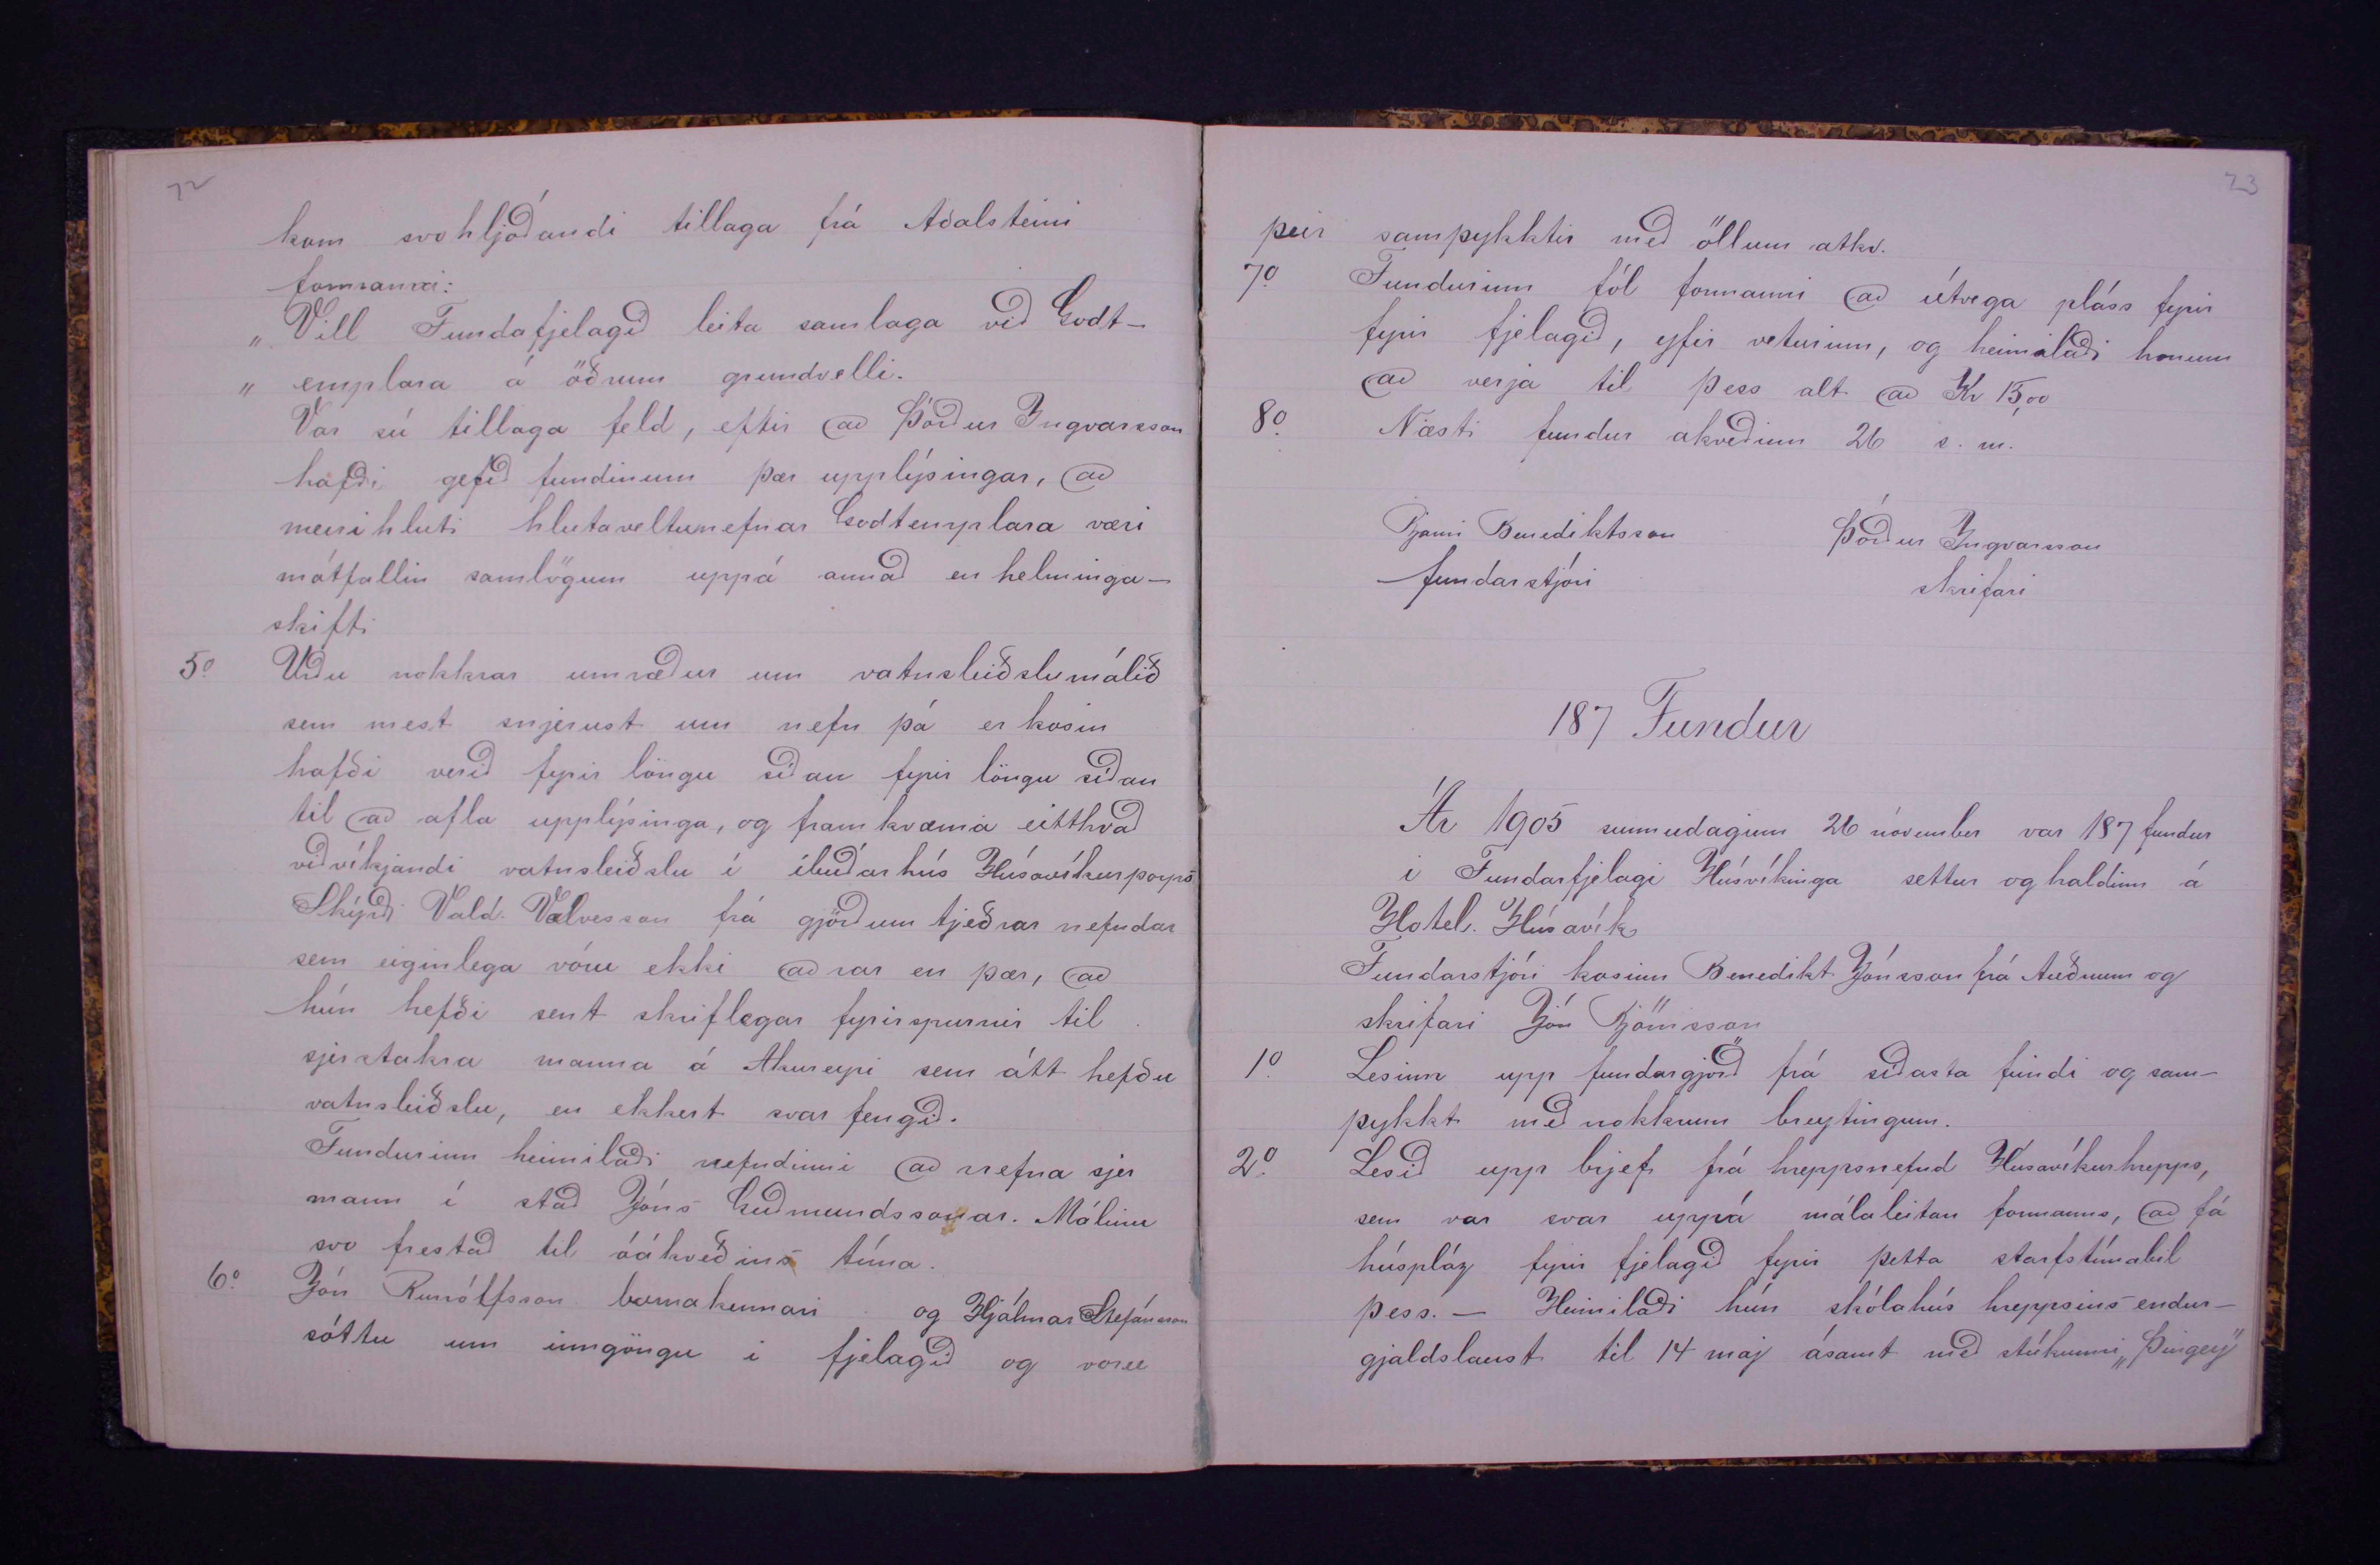 72
kom svohljóðandi tillaga frá Aðalsteini
formanni:
„ Vill Fundafjelagið leita samlaga við Godt-
„ emplara á öðrum grundvelli.
Var sú tillaga feld, eftir að Þórður Ingvarsson
hafði gefið fundinum þær upplýsingar, að
meirihluti hlutaveltunefnar Godtemplara væri
mótfallin samlögum uppá annað en helminga-
skifti
5º Urðu nokkrar umræður um vatnsleiðslumálið
sem mest snjerust um nefn þá er kosin
hafði verið fyrir löngu síðan fyrir löngu síðan
til að afla upplýsinga, og framkvæma eitthvað
viðvíkjandi vatnsleiðslu í íbúðarhús Húsavíkurþorps
Skýrði Vald. Valvesson frá gjörðum tjeðrar nefndar
sem eiginlega vóru ekki aðrar en þær, að
hún hefði sent skriflegar fyrirspurnir til
sjerstakra manna á Akureyri sem átt hefðu
vatnsleiðslu, en ekkert svar fengið.
Fundurinn heimilaði nefndinni að nefna sjer
mann í stað Jóns Guðmundssonar. Málinu
svo frestað til óákveðins tíma.
6º Jón Runólfsson barnakennari og Hjálmar Stefánsson
sóttu um inngöngu i fjelagið og voru
73
þeir samþykktir með öllum atkv.
7º Fundurinn fól formanni að útvega pláss fyrir
fyrir fjelagið, yfir veturinn, og heimilaði honum
að verja til þess alt að Kr 15,00
8º Næsti fundur akveðinn 26 s. m.
Bjarni Benediktsson Þórður Ingvarsson
fundarstjóri skrifari
187 Fundur
Ár 1905 sunnudaginn 26 nóvember var 187 fundur
i Fundarfjelagi Húsvíkinga settur og haldinn á
Hotel Húsavík
Fundarstjóri kosinn Benedikt Jónsson frá Auðnum og
skrifari Jón Björnsson
1º Lesinn upp fundargjörð frá síðasta fundi og sam-
þykkt með nokkrum breytingum.
2º Lesið upp brjef frá hreppsnefnd Húsavíkurhrepps,
sem var svar uppá málaleitan formanns, að fá
húspláz fyrir fjelagið fyrir þetta starfstímabil
þess. — Heimilaði hún skólahús hreppsins endur-
gjaldslaust til 14 maj ásamt með stúkunni „Þingey"